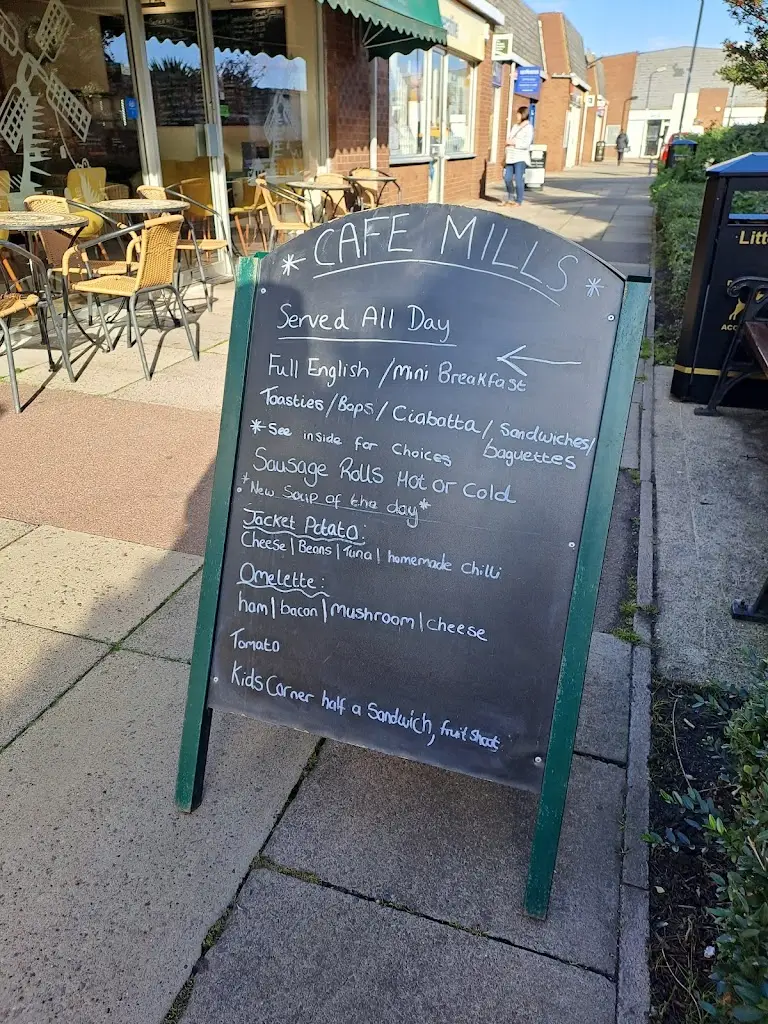 * CAFE MILLS *
Served All Day
Full English / Mini Breakfast
Toasties / Baps / Ciabatta / Sandwiches /
baguettes
* See inside for Choices
Sausage Rolls Hot or Cold
* New Soup of the day *
Jacket Potato:
Cheese | Beans | Tuna | homemade chilli
Omelette:
ham | bacon | Mushroom | cheese
Tomato
Kids Corner half a Sandwich, fruit shoot
Litt